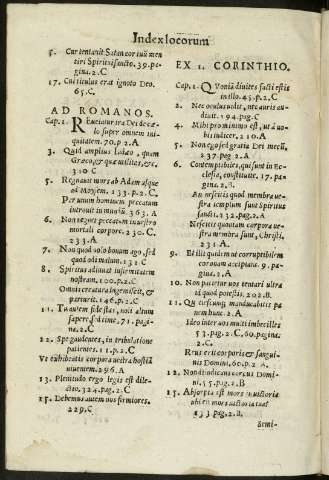 Index locorum
5. Cur tentauit Satan cor tuũ men
tiri Spiritui sancto. 39. pa-
gina. 2. C
17. Cui titulus erat ignoto Deo.
65. C.
AD ROMANOS.
Cap. 1. REuelatur ira Dei de cæ-
lo super omnem ini-
quitatem. 70. p. 2. A
3. Quid amplius Iudæo, quam
Græco, & quæ vtilitas, &c.
310 C
5. Regnauit mors ab Adam vsque
ad Moysem. 133. p. 2. C
Per vnum hominem peccatum
introiuit in mundũ. 363. A
6. Non regnet peccatum in vestro
mortali corpore. 230. C.
233. A
7. Non quod volo bonum ago, sed
quod odi malum. 231 C
8. Spiritus adiuuat infirmitatem
nostram. 100. p. 2. C
Omnis creatura ingemiscit, &
parturit. 146. p. 2. C
11. Tu autem fide stas, noli altum
sapere, sed time, 71. pagi-
na. 2. C
12. Spe gaudentes, in tribulatione
patientes. 11. p. 2. C
Vt exhibeatis corpora vestra hostiã
viuentem. 296. A
13. Plenitudo ergo legis est dile-
ctio. 324. pag. 2. C
15. Debemus autem nos firmiores.
229. C
EX 1. CORINTHIO.
Cap. 1. QVoniã diuites facti estis
in illo. 45. p. 2. C
2. Nec oculus vidit, nec auris au-
diuit. 194. pag. C
4. Mihi pro minimo est, vt à vo-
bis iudicer. 210. A
5. Non egosed gratia Dei mecũ,
237. pag. 2. A
6. Contemptibiles, qui sunt in Ec-
clesia, constituite. 17. pa-
gina. 2. B.
An nescitis quod membra ve-
stra templum sunt Spiritus
sancti. 232. pag. 2. A
Nescitis quoniam corpora ve-
stra membra sunt, Christi,
231 A.
9. Et illi quidem vt corruptibilem
coronam accipiant. 9. pa-
gina. 2. A
10. Non patietur vos tentari vltra
id quod potestis. 202. B.
11. Qui ... manducabitis pa-
nem hunc. 2. A
Ideo inter vos multi imbecilles
53. pag. 2. C, 60. pagina.
2. C.
Reus erit corporis & sangui-
nis Domini, 60. p. 2 A.
12. Non diiudicans corpus Domi-
ni, 55. pag. 2. B
15. Absorpta est mors in victoria
vbi est mors victoria tua?
133. pag. 2. B.
Semi-